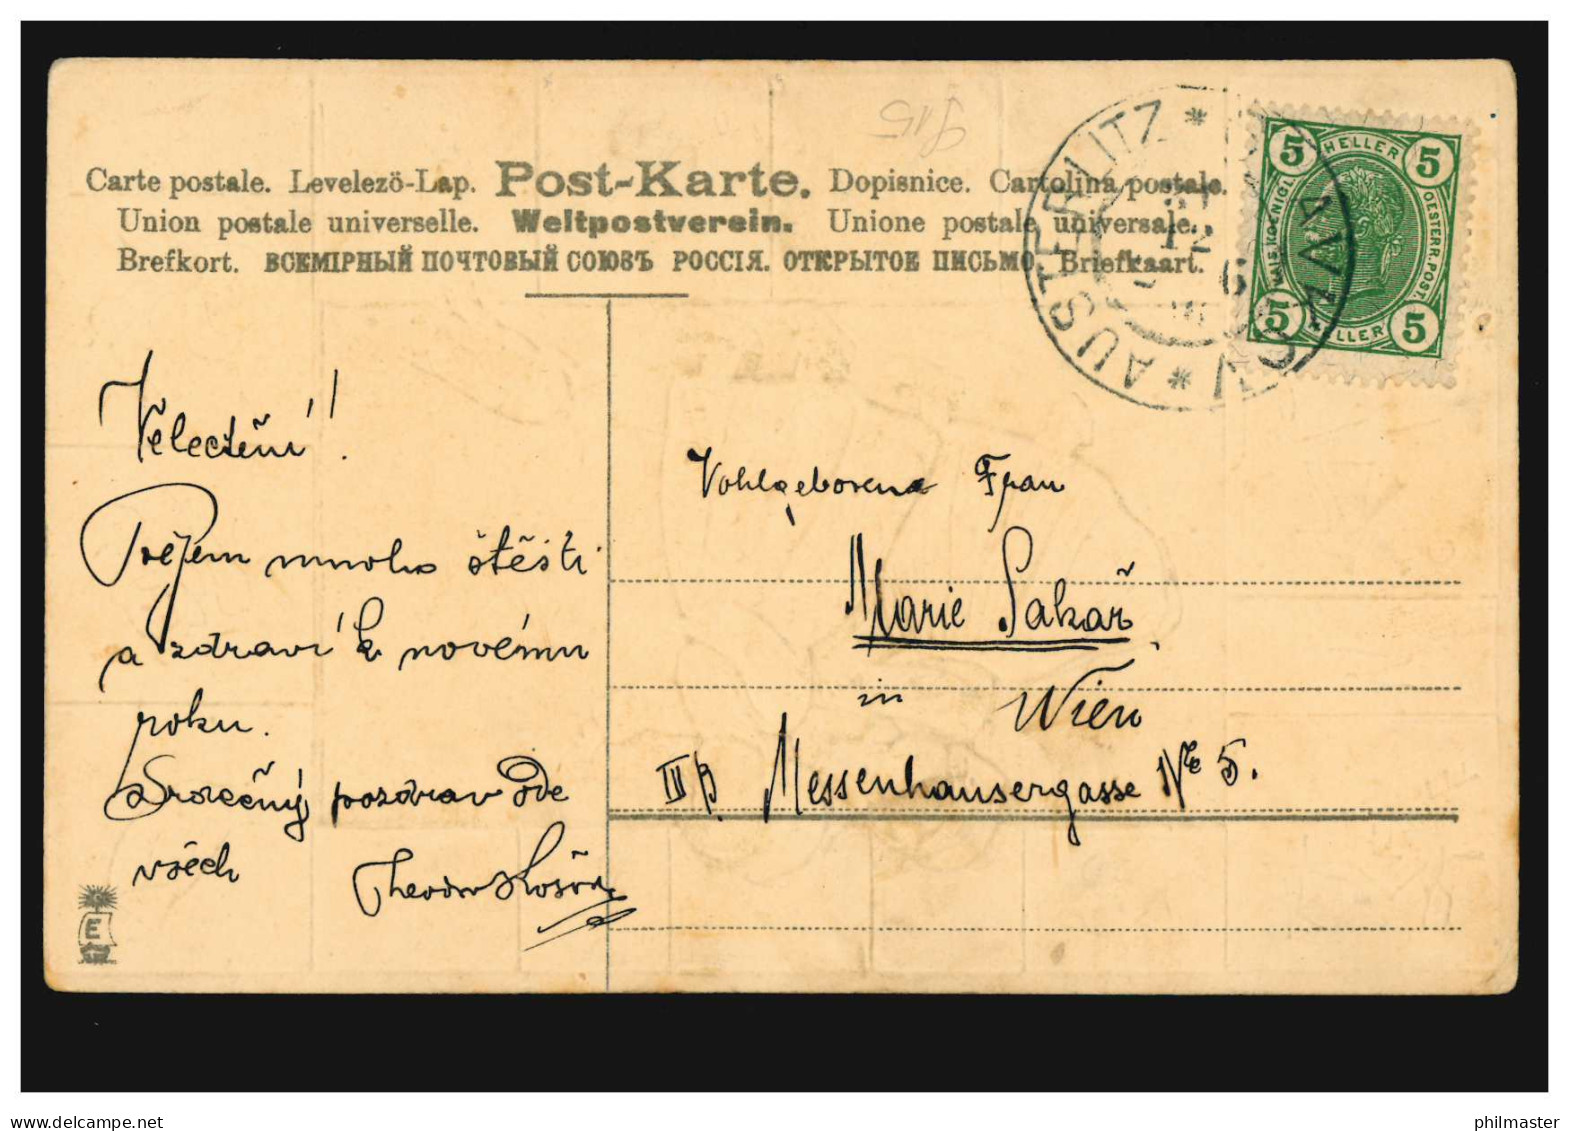 Carte postale. Levelezö-Lap. Post-Karte. Dopisnice. Cartolina postale.
Union postale universelle. Weltpostverein. Unione postale universale.
Brefkort. ВСЕМІРНЫЙ ПОЧТОВЫЙ СОЮЗЪ РОССІЯ. ОТКРЫТОЕ ПИСЬМО. Briefkaart.
AUSTERLITZ * SLAVKOV *
12
6
5 HELLER 5
KAIS. KOENIGL. OESTERR. POST.
5 HELLER 5
Velectění!
Přejem mnoho štěsti
a zdraví k novému
roku.
Srdečný pozdrav ode
všech
Theodor
E
Vohlgeborene Frau
Marie Sakař
in Wien
III/3. Messenhausergasse No 5.
www.delcampe.net
philmaster